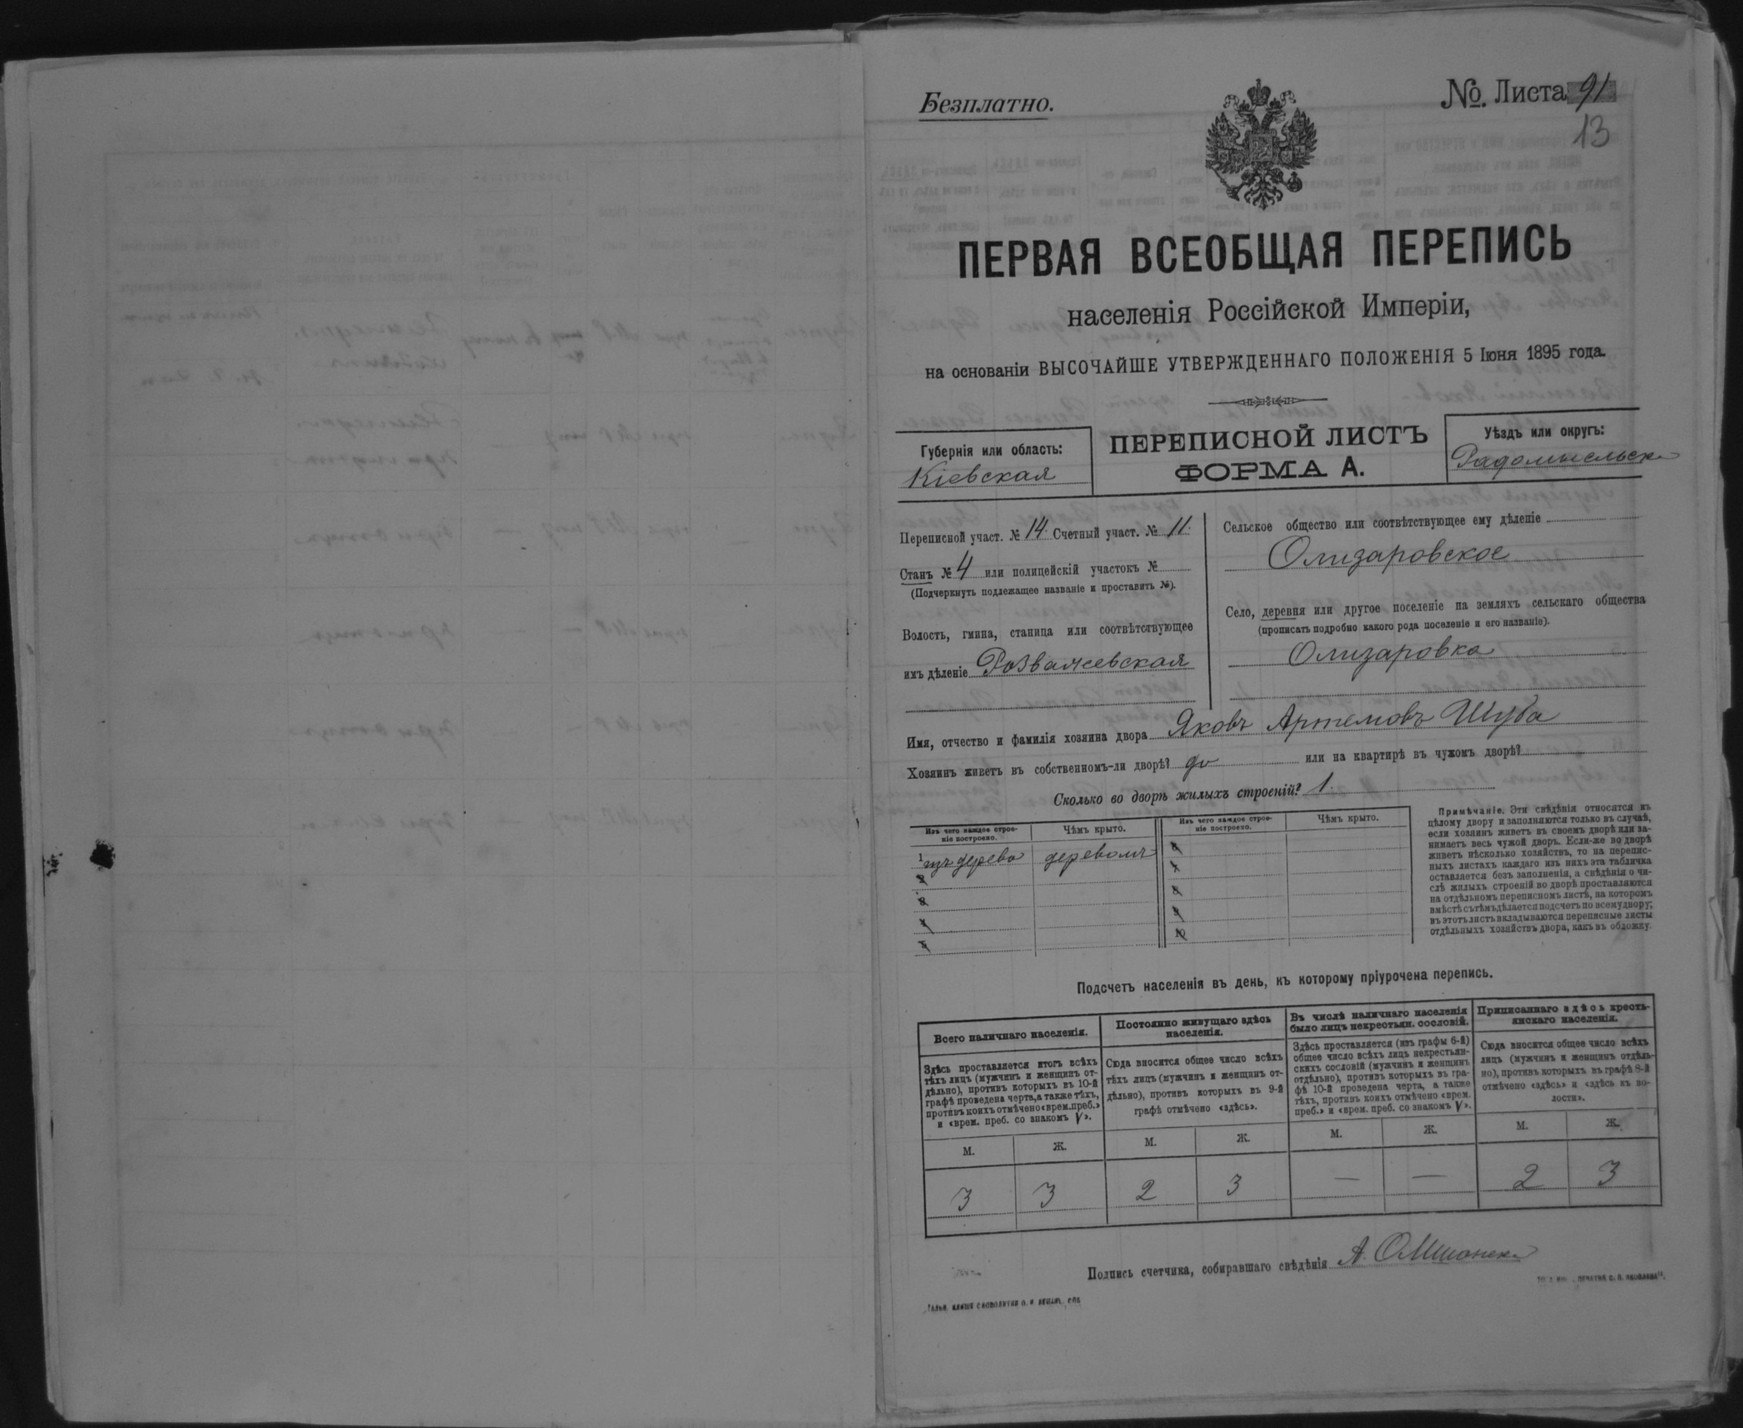 Безплатно.
№. Листа 91
13
ПЕРВАЯ ВСЕОБЩАЯ ПЕРЕПИСЬ
населенія Россійской Имперіи,
на основаніи ВЫСОЧАЙШЕ УТВЕРЖДЕННАГО ПОЛОЖЕНІЯ 5 Іюня 1895 года.
Губернія или область:
Кіевская
ПЕРЕПИСНОЙ ЛИСТЪ
ФОРМА А.
Уѣздъ или округъ:
Радомысльск
Переписной участ. № 14. Счетный участ. № 11.
Станъ № 4 или полицейскій участокъ №
(Подчеркнуть подлежащее названіе и проставить №).
Волость, гмина, станица или соотвѣтствующее
имъ дѣленіе Розважевская
Сельское общество или соотвѣтствующее ему дѣленіе
Олизаровское
Село, деревня или другое поселеніе на земляхъ сельскаго общества
(прописать подробно какого рода поселеніе и его названіе).
Олизаровка
Имя, отчество и фамилія хозяина двора Яковъ Артемовъ Шуба
Хозяинъ живетъ въ собственномъ-ли дворѣ? да или на квартирѣ въ чужомъ дворѣ?
Сколько во дворѣ жилыхъ строеній? 1.
Изъ чего каждое строе-
ніе построено.
Чѣмъ крыто.
Изъ чего каждое строе-
ніе построено.
Чѣмъ крыто.
1 изъ дерева деревомъ
2
3
4
5
6
7
8
9
10
Примѣчаніе. Эти свѣдѣнія относятся къ
цѣлому двору и заполняются только въ случаѣ,
если хозяинъ живетъ въ своемъ дворѣ или за-
нимаетъ весь чужой дворъ. Если-же во дворѣ
живетъ нѣсколько хозяйствъ, то на перепис-
ныхъ листахъ каждаго изъ нихъ эта табличка
оставляется безъ заполненія, а свѣдѣнія о чи-
слѣ жилыхъ строеній во дворѣ проставляются
на отдѣльномъ переписномъ листѣ, на которомъ
вмѣстѣ съ тѣмъ дѣлается подсчетъ по всему двору;
въ этотъ листъ вкладываются переписные листы
отдѣльныхъ хозяйствъ двора, какъ въ обложку.
Подсчетъ населенія въ день, къ которому пріурочена перепись.
Всего наличнаго населенія.
Здѣсь проставляется итогъ всѣхъ
тѣхъ лицъ (мужчинъ и женщинъ от-
дѣльно), противъ которыхъ въ 10-й
графѣ проведена черта, а также тѣхъ,
противъ коихъ отмѣчено «врем. преб.»
и «врем. преб. со знакомъ V».
Постоянно живущаго здѣсь
населенія.
Сюда вносится общее число всѣхъ
тѣхъ лицъ (мужчинъ и женщинъ от-
дѣльно), противъ которыхъ въ 9-й
графѣ отмѣчено «здѣсь».
Въ числѣ наличнаго населенія
было лицъ некрестьян. сословій.
Здѣсь проставляется (изъ графы 6-й)
общее число всѣхъ лицъ некрестьян-
скихъ сословій (мужчинъ и женщинъ
отдѣльно), противъ которыхъ въ гра-
фѣ 10-й проведена черта, а также
тѣхъ, противъ коихъ отмѣчено «врем.
преб.» и «врем. преб. со знакомъ V».
Приписаннаго здѣсь кресть-
янскаго населенія.
Сюда вносится общее число всѣхъ
лицъ (мужчинъ и женщинъ отдѣль-
но), противъ которыхъ въ графѣ 8-й
отмѣчено «здѣсь» и «здѣсь въ во-
лости».
М. Ж. М. Ж. М. Ж. М. Ж.
3 3 2 3 — — 2 3
Подпись счетчика, собиравшаго свѣдѣнія А.